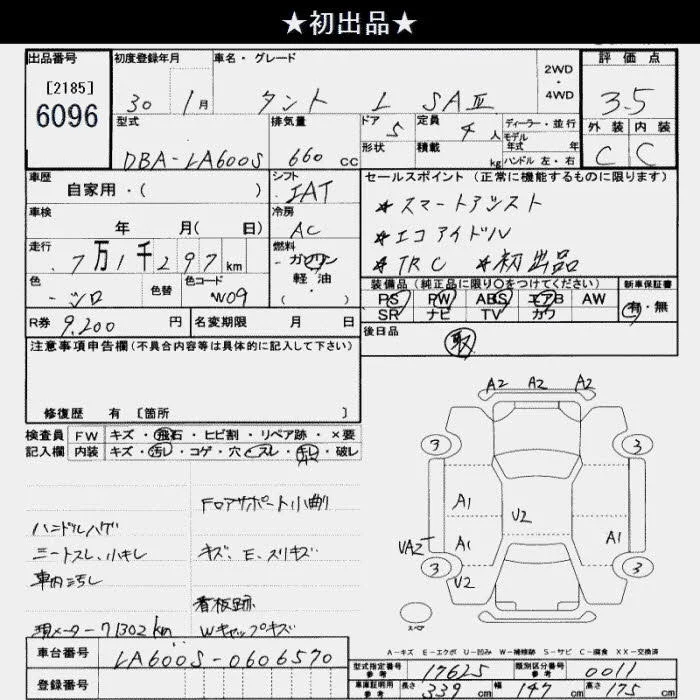 ★初出品★
出品番号 初度登録年月 車名・グレード 2WD・4WD 評価点
[2185] 6096 30 1月 タント L SAⅢ 3.5
型式 排気量 ドア 5 定員 4人 ディーラー・並行 外装 内装
モデル年式 年
形状 積載 kg ハンドル 左・右
DBA-LA600S 660 cc C C
車歴 シフト セールスポイント(正常に機能するものに限ります)
自家用・( ) IAT ★スマートアシスト
車検 冷房
年 月( 日) AC ★エコアイドル
走行 燃料
7万1千297km ガソリン ★TRC ★初出品
軽油
・( )
色 色替 色コード 装備品(純正品に限り○をつけてください) 新車保証書
シロ W09 PS PW ABS エアB AW 有・無
SR ナビ TV カワ
R券 9,200円 名変期限 月 日 後日品
注意事項申告欄(不具合内容等は具体的に記入して下さい) 取
修復歴 有 [箇所 ]
検査員 FW キズ・飛石・ヒビ割・リペア跡・×要
記入欄 内装 キズ・汚レ・コゲ・穴・スレ・キレ・破レ
A2 A2 A2
3 3
A1
U2
A1 A1
UA2
3 3
U2
スペア
フロアサポート小曲リ
ハンドルハゲ
シートスレ、小キレ キズ、E、スリキズ
車内汚し
看板跡
現メーター71302km Wキャップキズ
A-キズ E-エクボ U-凹み W-補修跡 S-サビ C-腐食 XX-交換済
車台番号 LA600S-0606570 型式指定番号 参考 17625 類別区分番号 参考 0011
登録番号 車庫証明用 参考 長さ 339cm 幅 147cm 高さ 175cm